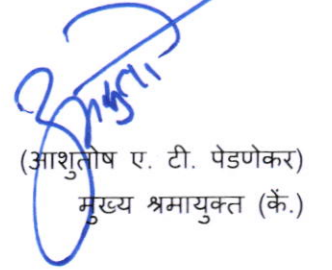 (आशुतोष ए. टी. पेडणेकर)
मुख्य श्रमायुक्त (कें.)